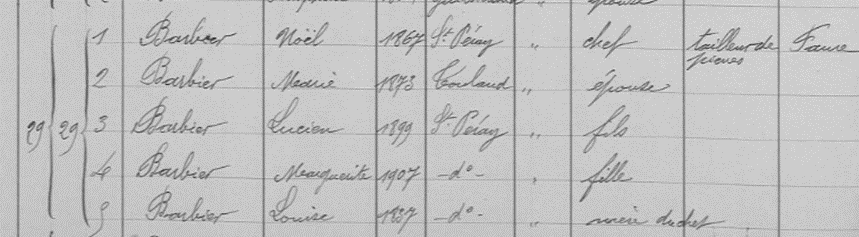 1 Barbier Noël 1867 St Péray " chef tailleur de pierres Faure
2 Barbier Marie 1873 Toulaud " épouse
29 29 3 Barbier Lucien 1899 St Péray " fils
4 Barbier Marguerite 1907 -do- " fille
5 Barbier Louise 1837 -do- " mère du chef